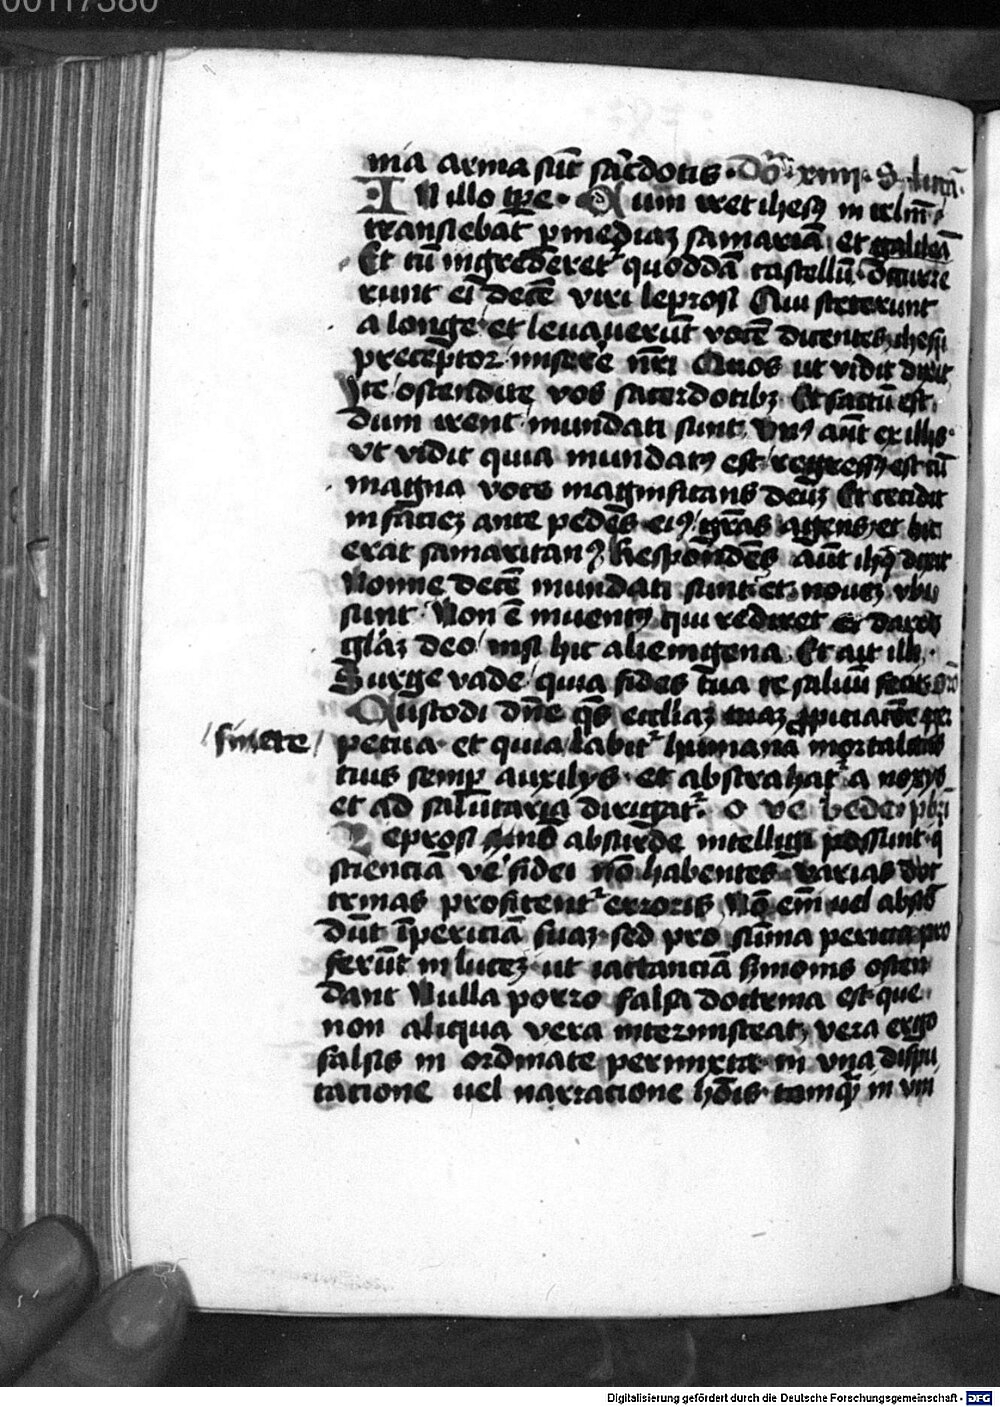 00117380
mīa arma sūt sac̄dotis. Dō xiiii. S. lucā.
IN illo tp̄e. Cum iret ihesꝰ in irlm̄
transiebat p mediaꝫ samariā et galileā
Et cū ingrederet᷑ quoddā castellū. Occurre
runt ei decē viri leprosi Qui steterunt
a longe et leuauerūt vocē dicentes ihesu
preceptor miserē nr̄i Quos ut vidit dixit
Ite ostendite vos sacerdotibꝫ Et factū est
dum irent mundati sunt. Vnꝰ aūt ex illis.
vt vidit quia mundatꝰ est regressꝰ est cū
magna voce magnificans deuꝫ Et cecidit
in faciēꝫ ante pedes eiꝰ gr̄as agens et hic
erat samaritanꝰ Respondēs aūt ihꝰ dixit
Nonne decē mundati sunt et nouēꝫ vbi
sunt Non ē inuentꝰ qui rediret et daret
gl̄iaꝫ deo nisi hic alienigena. Et ait illi.
Surge vade quia fides tua te saluū fecit.
Custodi dn̄e qs̄ eccl̄iaꝫ tuaꝫ ꝓpiciacōe per
/sine te/
petua. et quia labit᷑ humana mortalitas
tuis semp̄ auxilijs. et abstrahat᷑ a noxijs
et ad salutaria dirigat᷑. O ve bede pbr̄i
Leprosi nō absurde intelligi possunt q̄
scienciā ve᷑ fidei nō habentes varias doc
trinas profitent᷑ erroris Nō em̄ uel absco
dūt īpericiā suaꝫ sed pro sūma pericia pro
ferūt in luceꝫ ut iactanciā sermonis osten
dant Nulla porro falsa doctrina est que
non aliqua vera intermisceat, vera ergo
falsis in ordinate permixta in vna dispu
tacione uel narracione hōis. tamq̄ in vni
Digitalisierung gefördert durch die Deutsche Forschungsgemeinschaft - DFG